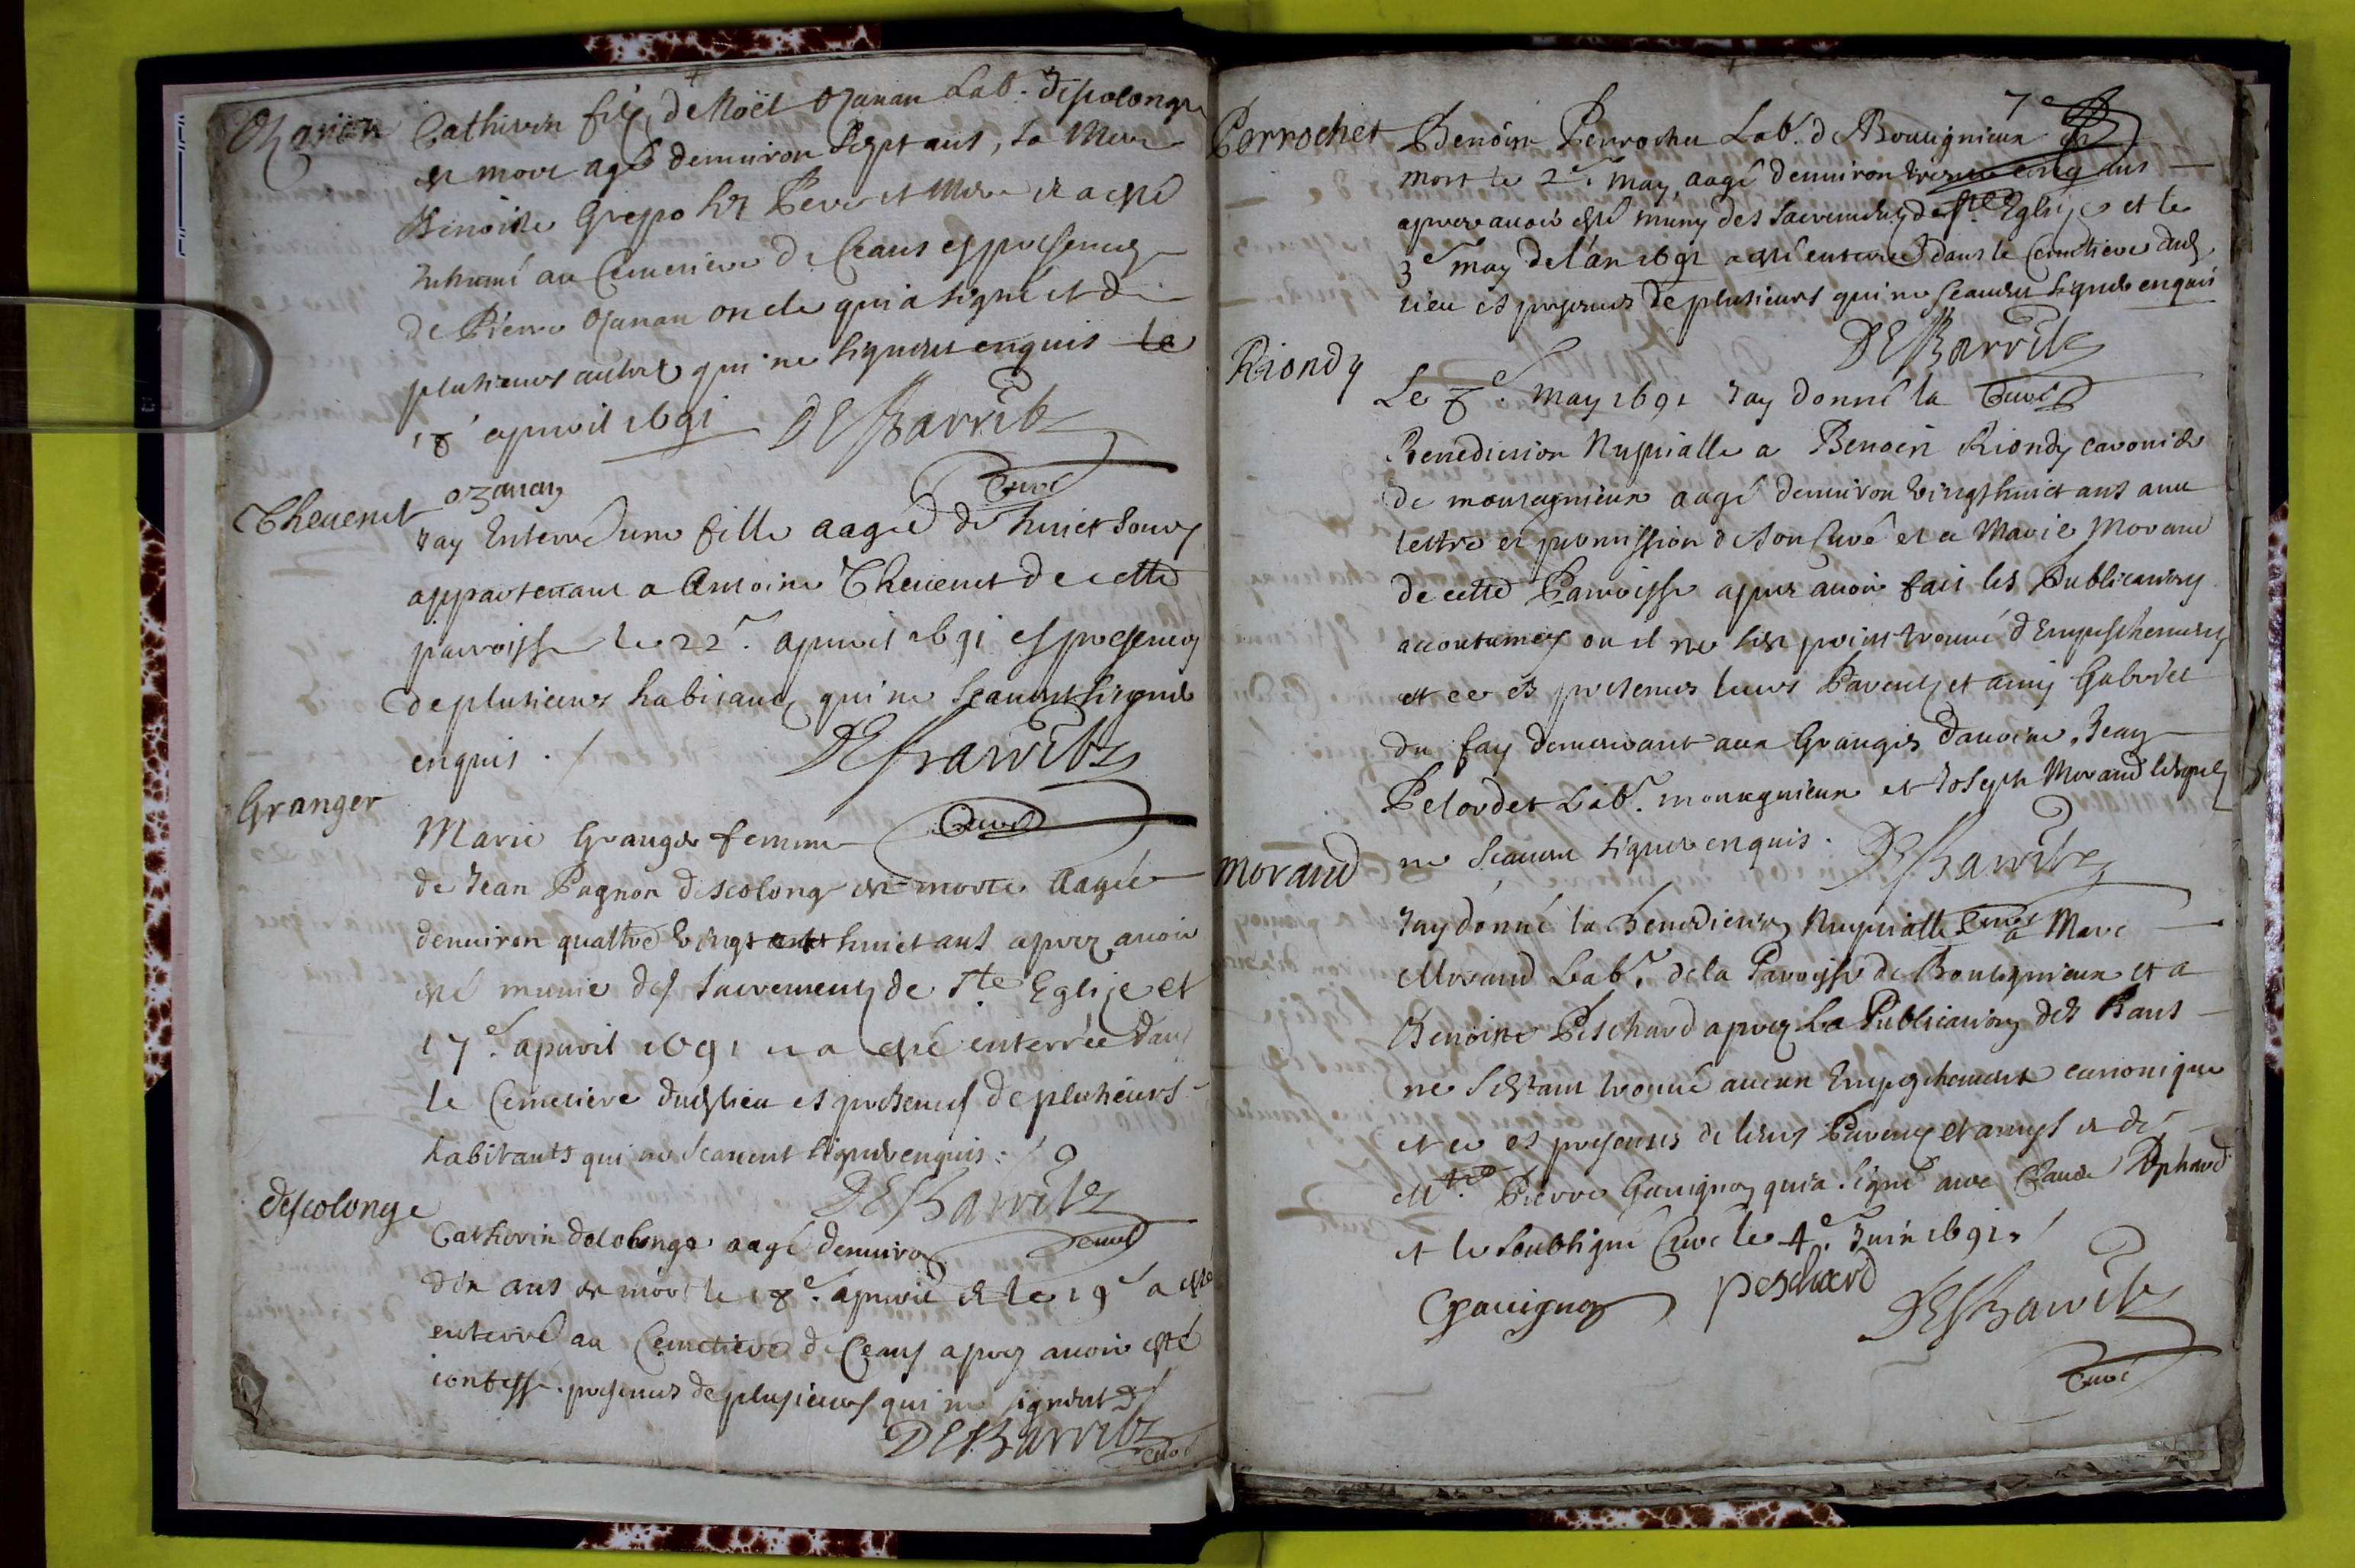 Ozanan
Cathivin filz de Noël Ozanan Lab. descolonge
est mort agé denuiron Sept ans, sa Mere
Benoiste Greppo ses Pere et Mere et a esté
Inhumé au Cemetiere de Ceans es presences
de Pierre Ozanan oncle qui a signé et de
plusieurs autres qui ne signent enquis le
18e apuril 1691 DESBarrits
ozanan Curé
Theuenet
Jay Enterré une fille aagée de huict Jours
appartenant a Antoine Theuenet de cette
parroisse le 22e. apuril 1691 es presences
de plusieurs habitans qui ne scauent signer
enquis . / DESBarrits
Curé
Granger
Marie Granger femme
de Jean Pugnon descolonge est morte aagée
denuiron quattre vingt huict ans aprez auoir
esté munie des Sacrements de Ste Eglise et
17e. apuril 1691 et a esté enterrée dans
le Cemetiere dud lieu es presences de plusieurs
habitants qui ne scauent signer enquis : /
DESBarrits
Curé
descolonge
Catherin decolonge aagé denuiron
dix ans est mort le 18e. apuril et le 19e a esté
enterré au Cemetiere de Ceans aprez auoir esté
confessé. presences de plusieurs qui ne signent
DESBarrits
Curé
7e
Perrochet
Benoist Perrochet Lab. de Bouligneux est
mort le 2e. may aagé denuiron trente cinq ans
aprez auoir esté muny des Sacrements de Ste Eglise et le
3e may de lan 1691 a esté enterré dans le Cemetiere dud
lieu es presences de plusieurs qui ne scauent signer enquis
DESBarrits
Curé
Riondy
Le 8e. may 1691 Jay donné la
Benediction Nuptialle a Benoist Riondy
de montagnieux aagé denuiron vingt huict ans auec
lettre et permission de son Curé et a Marie Morand
de cette Parroisse aprez auoir fait les Publications
accoutumées ou il ne sest point trouué dEmpeschements
et ce es presences leurs Parents et amis Gabriel
du fay demeurant aux Granges Jean
Pelordet Lab. montagnieux et Joseph Morand lesquels
ne scauent signer enquis. DESBarrits
Curé
Morand
Jay donné la Benediction Nuptialle a Marc
Morand Lab. de la Paroisse de Bouligneux et a
Benoiste Peschard aprez La Publication des Bans
ne sestant trouué aucun Empeschement canonique
et ce es presences de leurs Parents et amys et de
Mre. Pierre Gauignon qui a signé auec Claude Peschard
et le soubsigné Curé le 4e. Juin 1691. /
Gauignon peschard DESBarrits
Curé